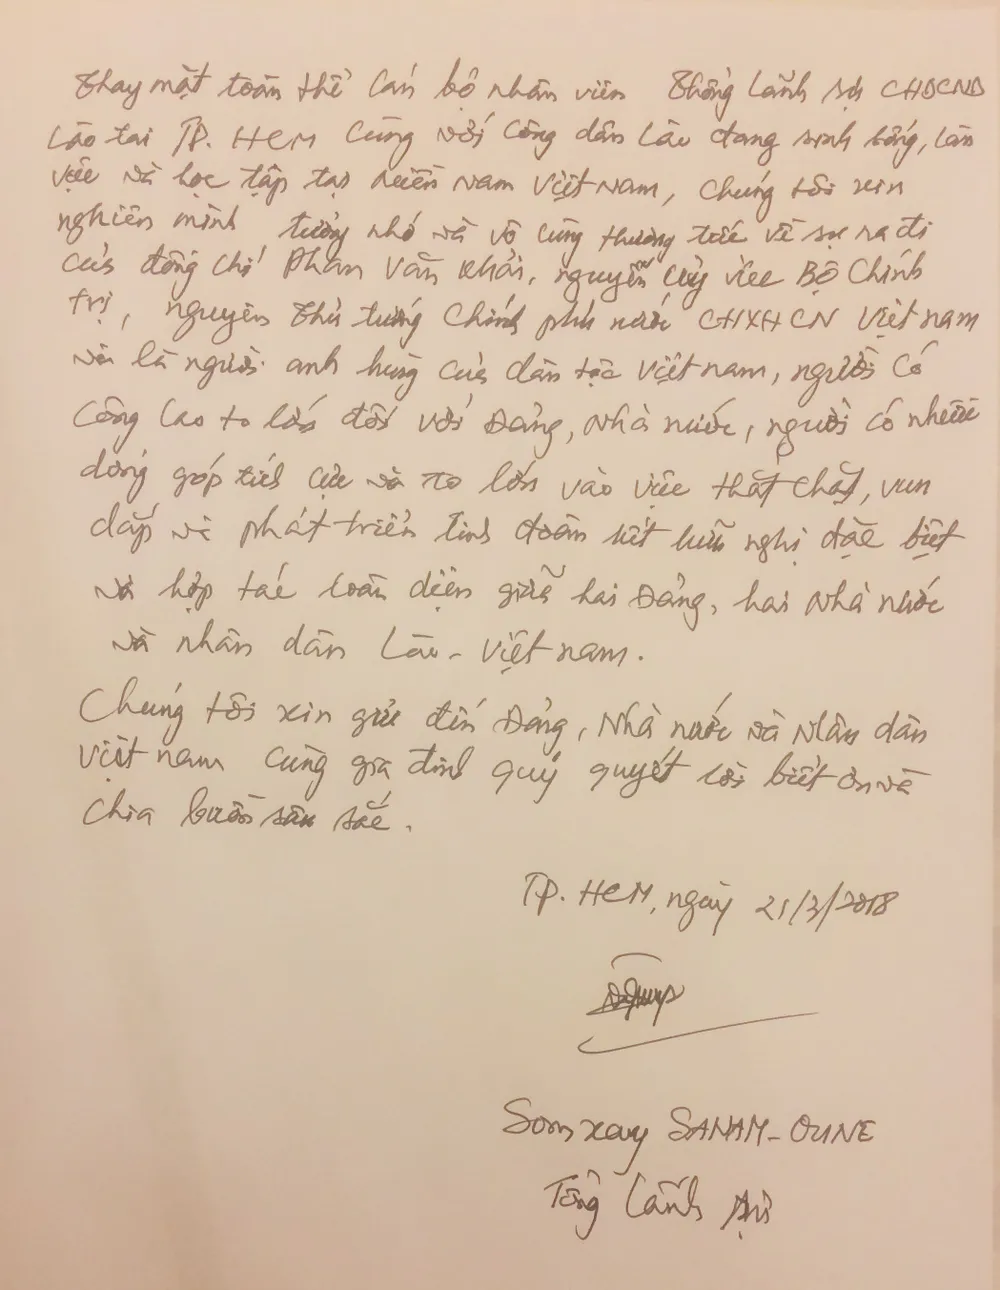 Thay mặt toàn thể cán bộ nhân viên Thổng Lãnh sự CHDCND
Lào tại TP. HCM cùng với công dân Lào đang sinh sống, làm
việc và học tập tại miền nam Việt Nam, chúng tôi xin
nghiên mình tưởng nhớ và vô cùng thương tiếc về sự ra đi
của đồng chí Phan Văn Khải, nguyên ủy viên Bộ Chính
trị, nguyên Thủ tướng Chính phủ nước CHXHCN Việt nam
và là người anh hùng của dân tộc Việt nam, người có
công lao to lớn đối với Đảng, Nhà nước, người có nhiều
đóng góp tích cực và to lớn vào việc thắt chặt, vun
đắp và phát triển tình đoàn kết hữu nghị đặc biệt
và hợp tác toàn diện giữa hai Đảng, hai Nhà nước
và nhân dân Lào - Việt nam.
Chúng tôi xin gửi đến Đảng, Nhà nước và Nhân dân
Việt nam cùng gia đình quý quyết lời biết ơn và
chia buồn sâu sắc.
TP. HCM, ngày 21/3/2018
Somxay SANAM-OUNE
Tổng Lãnh sự